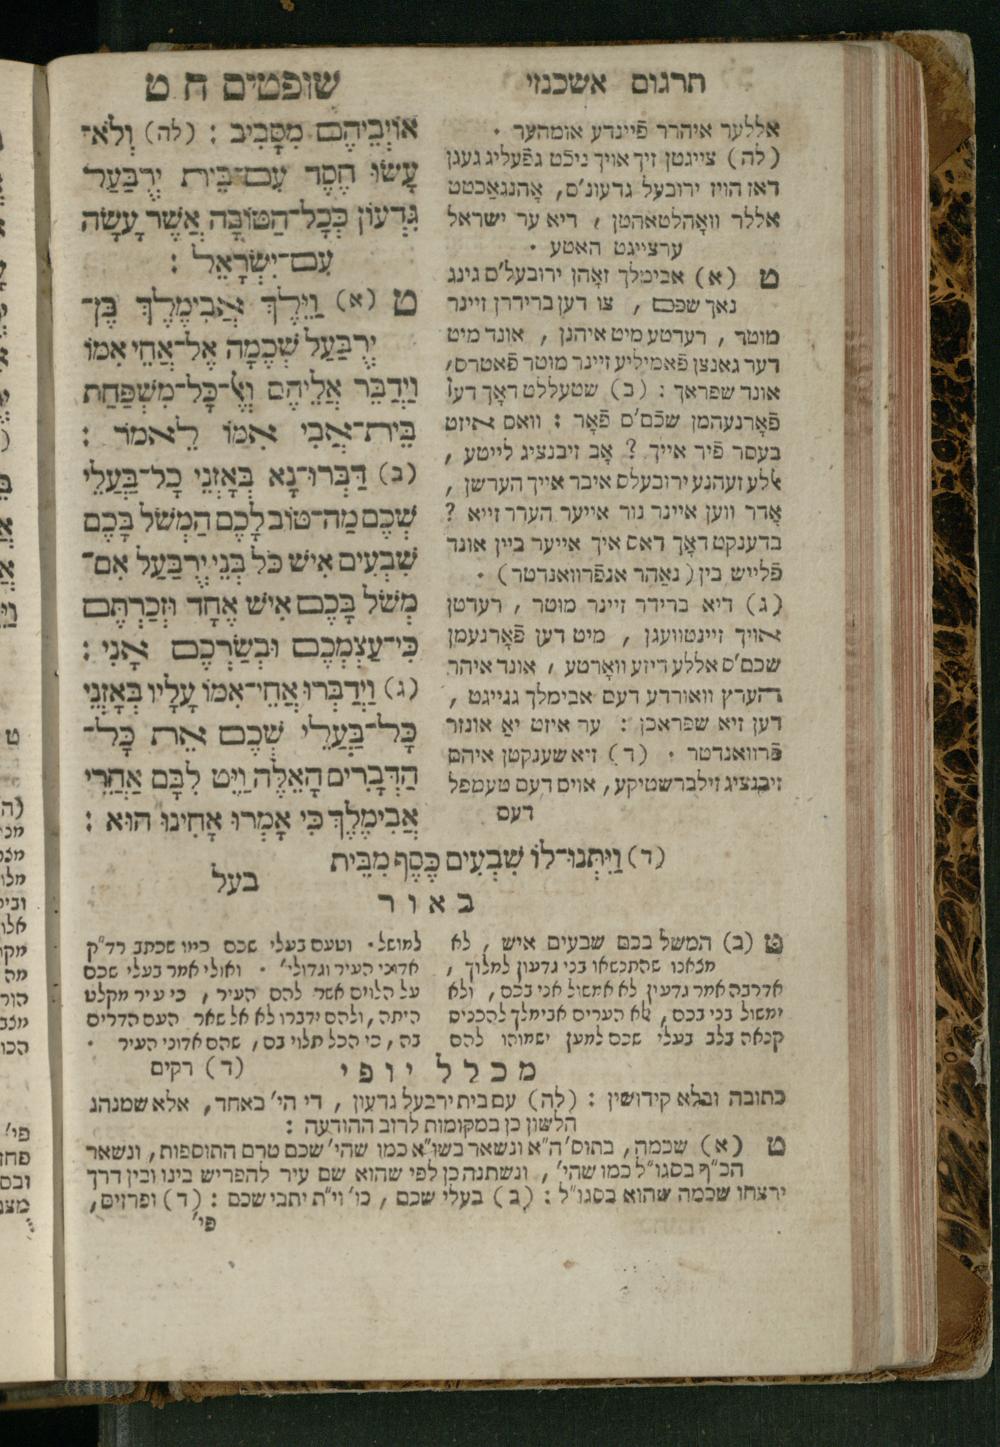 תרגום אשכנזי
שופטים ח ט
אללער איהרר פֿיינדע אומהער .
(לה) צייגטן זיך אויך ניכֿט גפֿעליג געגן
דאז הויז ירובעל גדעונ'ם, אָהנגאַכטט
אללר וואָהלטאַהטן , דיא ער ישראל
ערצייגט האטע .
ט (א) אבימלך זאָהן ירובעל'ם גינג
נאך שכם , צו דען ברידרן זיינר
מוטר , רעדטע מיט איהנן , אונד מיט
דער גאנצן פֿאמיליע זיינר מוטר פֿאטרס,
אונד שפראך : (ב) שטעללט דאָך דען
פֿאָרנעהמן שכֿם'ם פֿאָר : וואס איזט
בעסר פֿיר אייך ? אָב זיבנציג לייטע ,
אללע זעהנע ירובעלס איבר אייך הערשן ,
אָדר ווען איינר נור אייער הערר זייא ?
בדענקט דאָך דאס איך אייער ביין אונד
פֿלייש בין (נאַהר אנפֿרוואנדטר) .
(ג) דיא ברידר זיינר מוטר , רעדטן
אויך זיינטוועגן , מיט דען פֿאָרנעמן
שכם'ס אללע דיזע וואָרטע , אונד איהר
הערץ וואורדע דעם אבימלך גנייגט ,
דען זיא שפראכן : ער איזט יאַ אונזר
פֿרוואנדטר . (ד) זיא שענקטן איהם
זיבנציג זילברשטיקע, אויס דעם טעמפל
דעס
אוֹיְבֵיהֶם מִסָּבִיב : (לה) וְלֹא־
עָשׂוּ חֶסֶד עִם־בֵּית יְרֻבַּעַל
גִּדְעוֹן כְּכָל־הַטּוֹבָה אֲשֶׁר עָשָׂה
עִם־יִשְׂרָאֵל :
ט (א) וַיֵּלֶךְ אֲבִימֶלֶךְ בֶּן־
יְרֻבַּעַל שְׁכֶמָה אֶל־אֲחֵי אִמּוֹ
וַיְדַבֵּר אֲלֵיהֶם וְאֶל־כָּל־מִשְׁפַּחַת
בֵּית־אֲבִי אִמּוֹ לֵאמֹר :
(ב) דַּבְּרוּ־נָא בְּאָזְנֵי כָל־בַּעֲלֵי
שְׁכֶם מַה־טּוֹב לָכֶם הַמְשֹׁל בָּכֶם
שִׁבְעִים אִישׁ כֹּל בְּנֵי יְרֻבַּעַל אִם־
מְשֹׁל בָּכֶם אִישׁ אֶחָד וּזְכַרְתֶּם
כִּי־עַצְמְכֶם וּבְשַׂרְכֶם אָנִי :
(ג) וַיְדַבְּרוּ אֲחֵי־אִמּוֹ עָלָיו בְּאָזְנֵי
כָּל־בַּעֲלֵי שְׁכֶם אֵת כָּל־
הַדְּבָרִים הָאֵלֶּה וַיֵּט לִבָּם אַחֲרֵי
אֲבִימֶלֶךְ כִּי אָמְרוּ אָחִינוּ הוּא :
(ד) וַיִּתְּנוּ־לוֹ שִׁבְעִים כֶּסֶף מִבֵּית
בעל
באור
ט (ב) המשל בכם שבעים איש , לא
מצאנו שהתנשאו בני גדעון למלוך ,
אדרבה אמר גדעון לא אמשול אני בכם , ולא
ימשול בני בכם , לא הערים אבימלך להכניס
קנאה בלב בעלי שכם למען ישמוהו להם
למושל . וטעם בעלי שכם כמו שכתב רד"ק
אדוני העיר וגדולי' . ואולי אמר בעלי שכם
על הלוים אשר להם העיר , כי עיר מקלט
היתה , ולהם ידברו לא אל שאר העם הדרים
בה , כי הכל תלוי בם , שהם אדוני העיר .
(ד) רקים
מכלל יופי
כתובה ובלא קידושין : (לה) עם בית ירבעל גדעון , די הי' באחד, אלא שמנהג
הלשון כן במקומות לרוב ההודעה :
ט (א) שכמה, בתוס' ה"א ונשאר בשו"א כמו שהי' שכם טרם התוספות, ונשאר
הכ"ף בסגו"ל כמו שהי' , ונשתנה כן לפי שהוא שם עיר להפריש בינו ובין דרך
ירצחו שכמה שהוא בסגו"ל : (ב) בעלי שכם , כו' וי"ת יתבי שכם : (ד) ופרוזים,
פי'